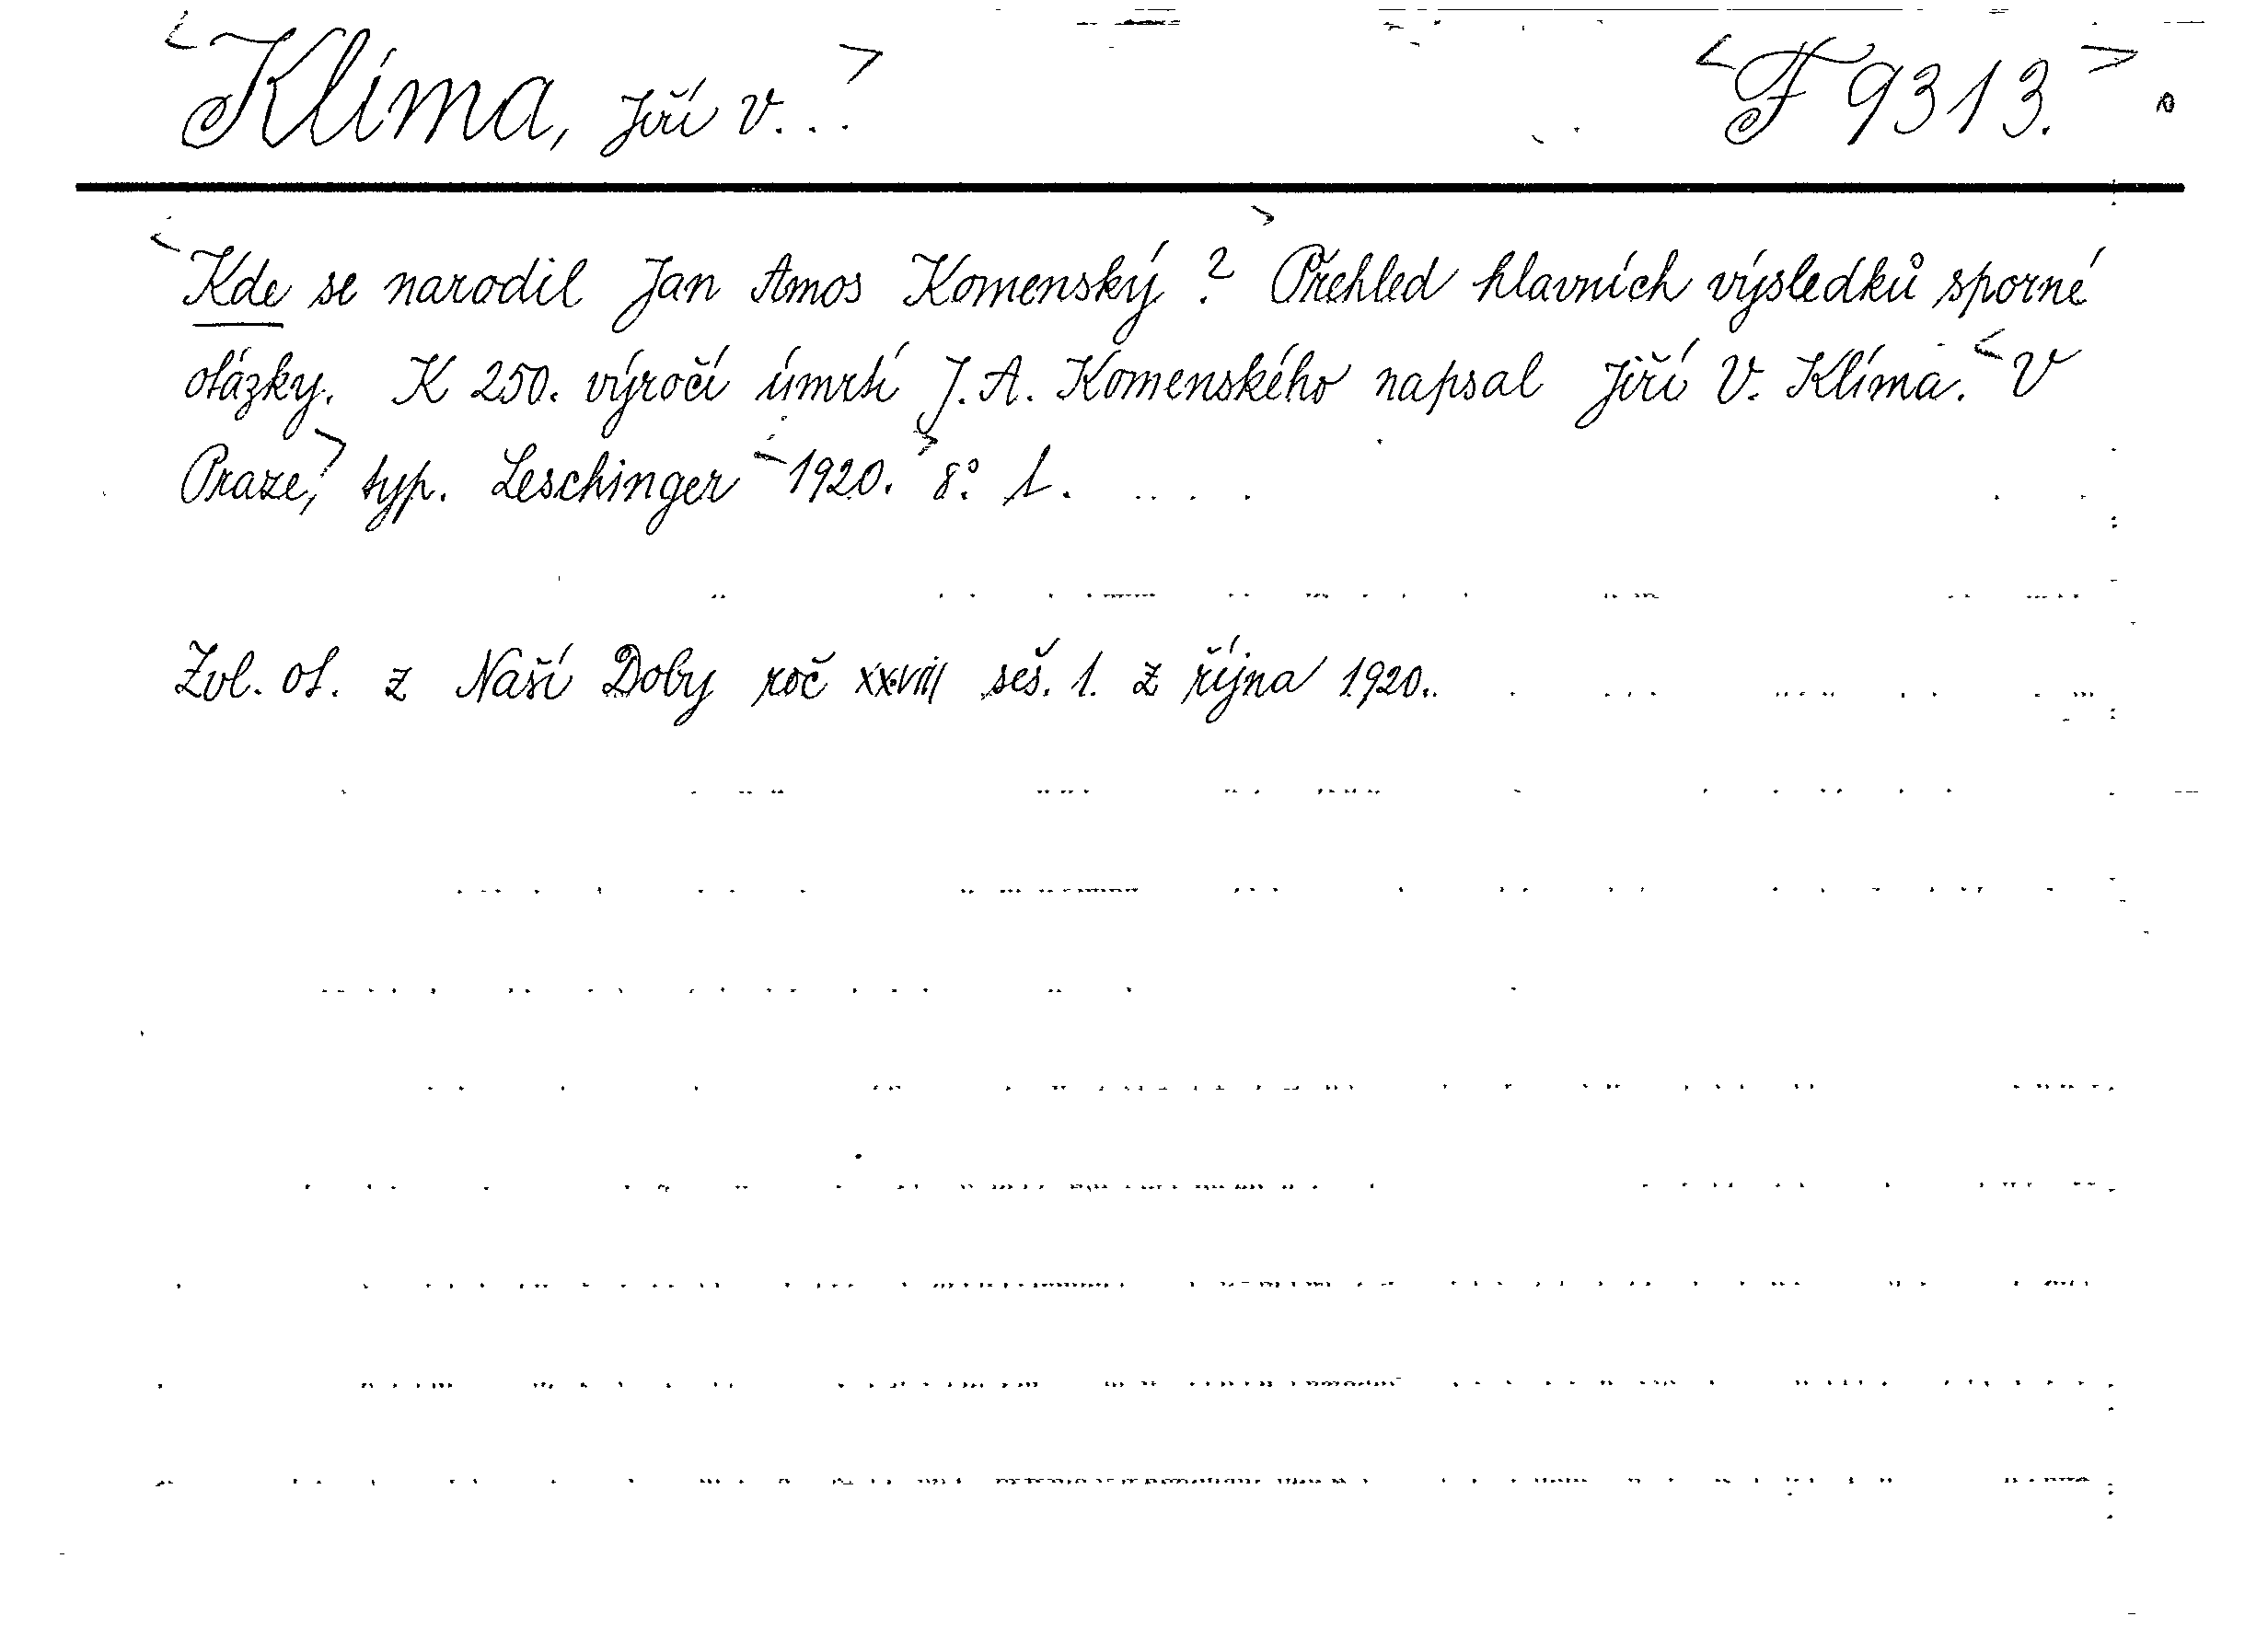 <Klíma, Jiří V...> <F 9313.>
<Kde se narodil Jan Amos Komenský?> Přehled hlavních výsledků sporné
otázky. K 250. výročí úmrtí J. A. Komenského napsal Jiří V. Klíma. <V
Praze,> typ. Leschinger <1920.> 8°. 1.
Zvl. ot. z Naší Doby roč XXVIII seš. 1. z října 1920.